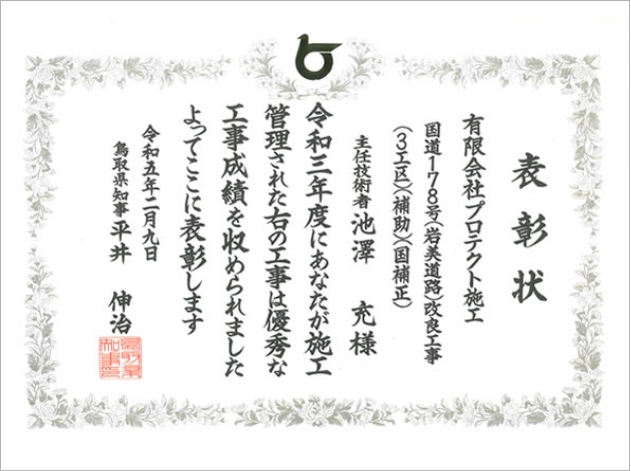 表彰状
有限会社プロテクト施工
国道178号(岩美道路)改良工事
(3工区)(補助)(国補正)
主任技術者 池澤 充様
令和三年度にあなたが施工
管理された右の工事は優秀な
工事成績を収められました
よってここに表彰します
令和五年二月九日
鳥取県知事 平井 伸治
鳥取県
知事印